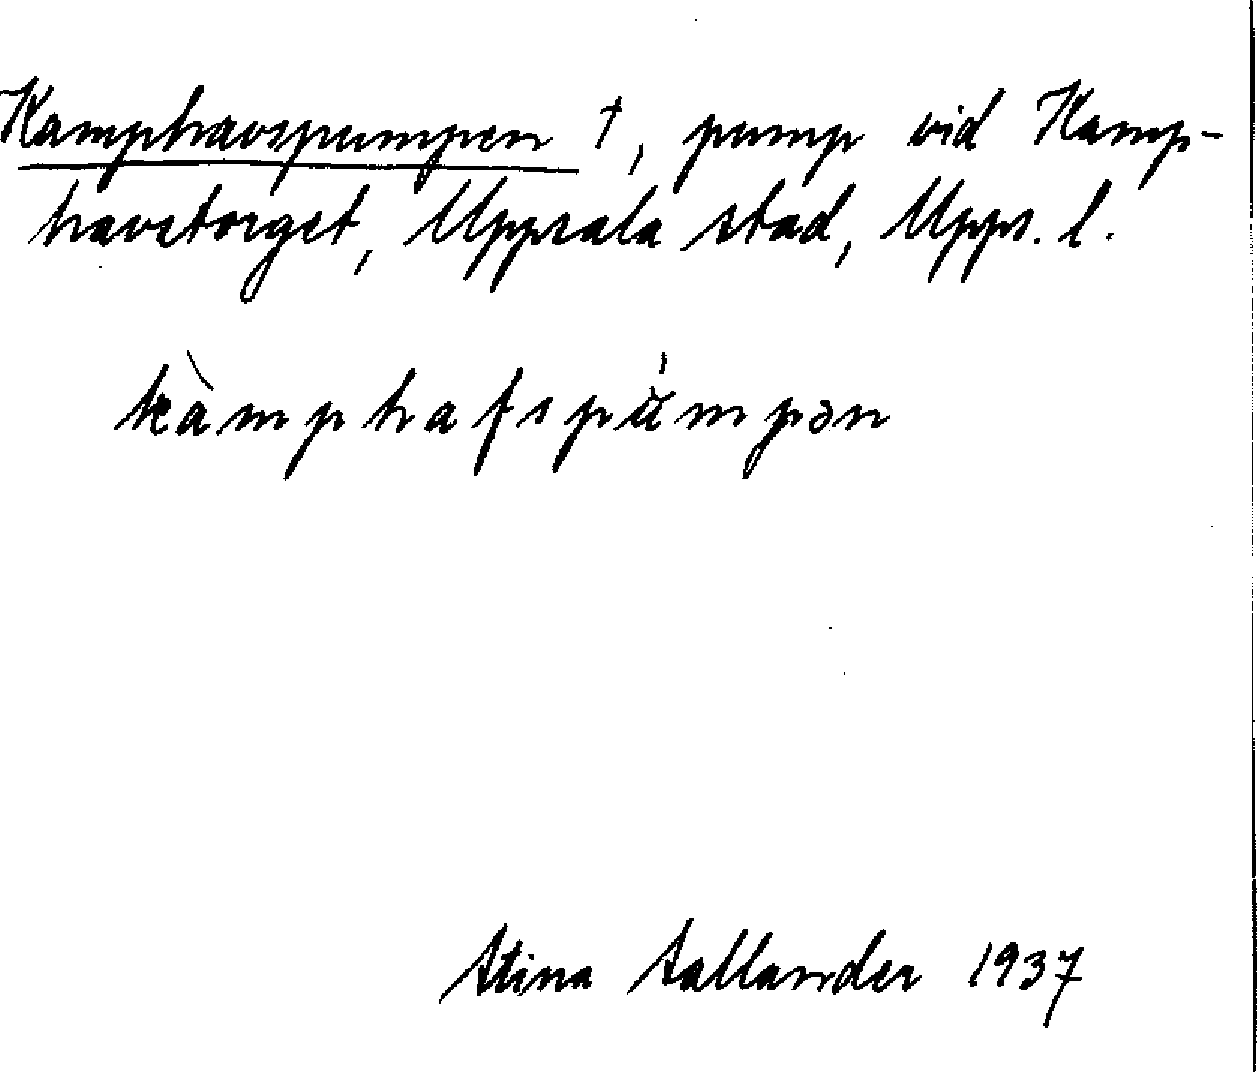 Kamphavspumpen †, pump vid Kamp-
havstorget, Uppsala stad, Upps. l.
kàmphafspu̇́mpən
Stina Sallander 1937